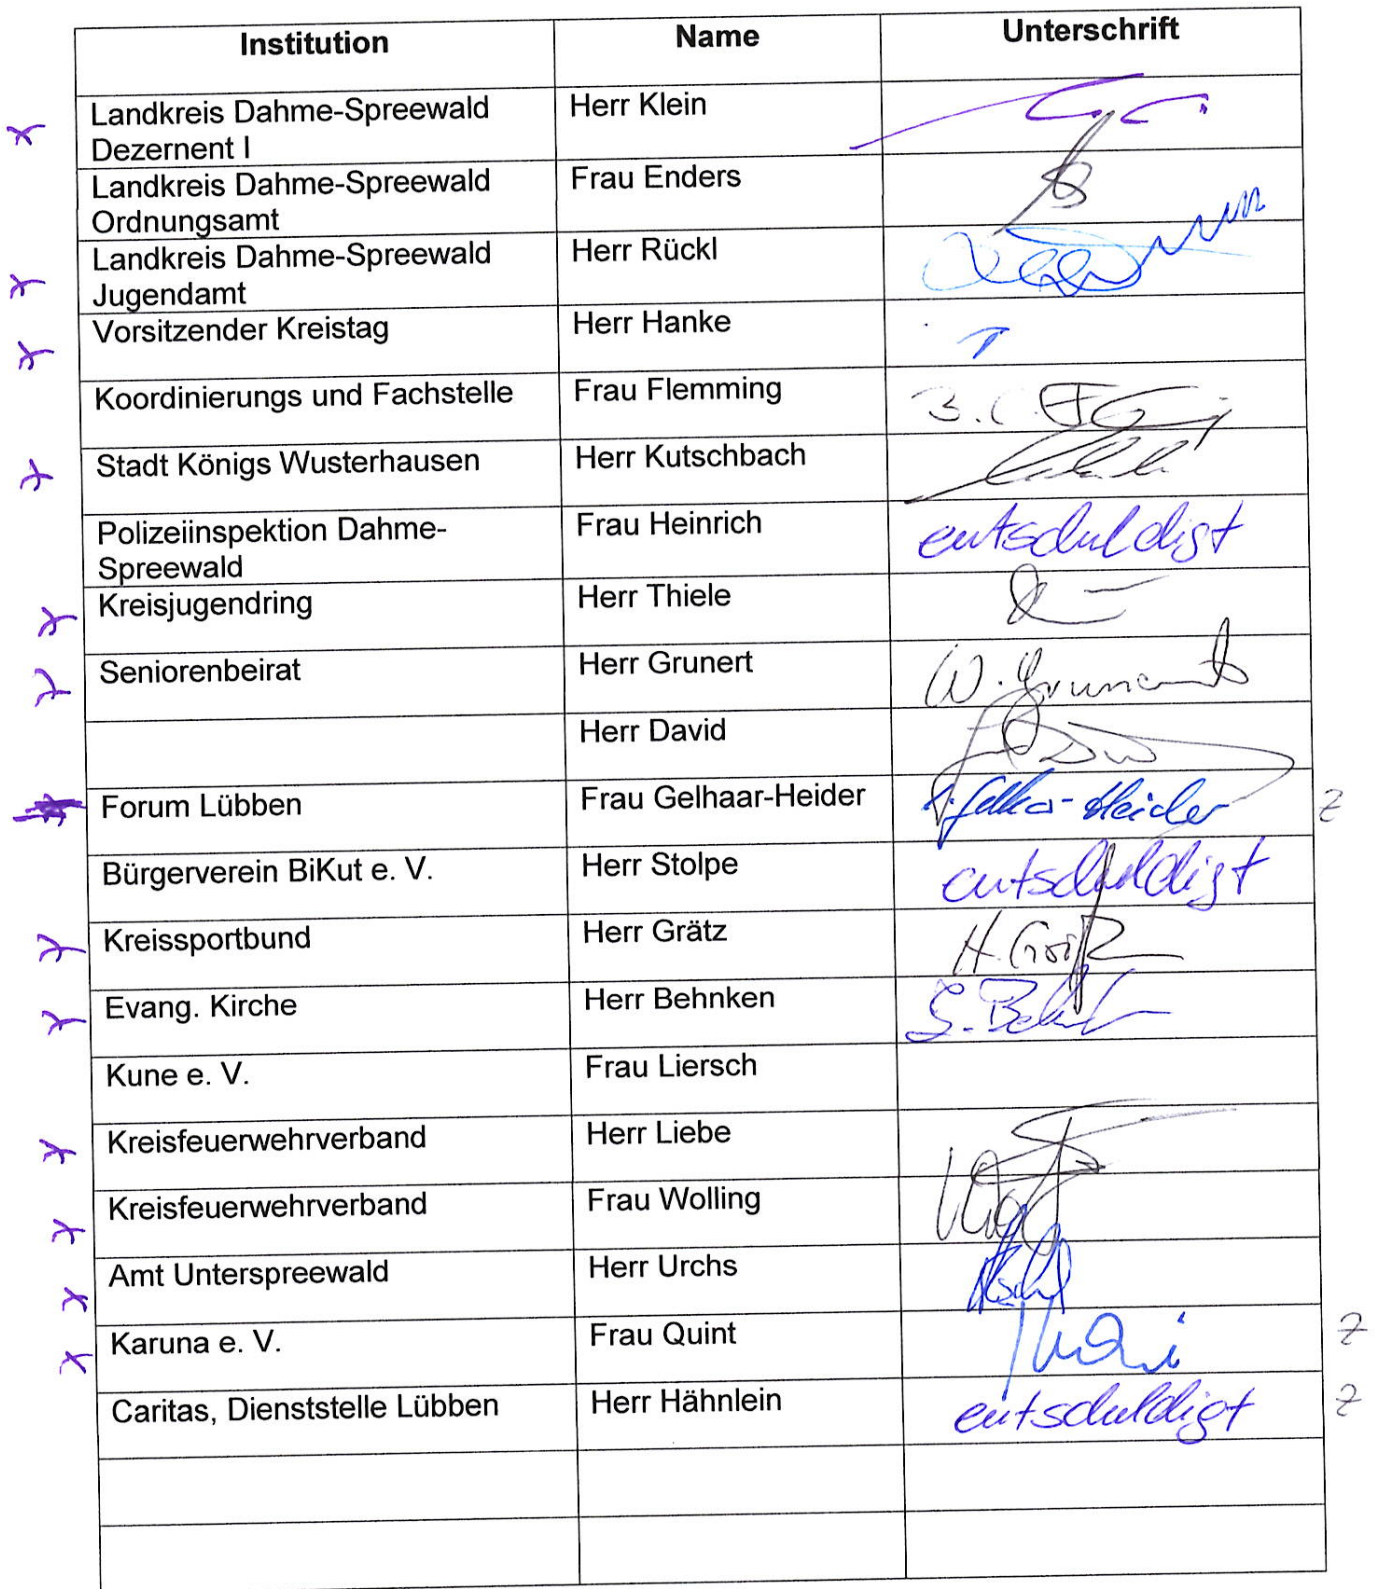 Institution Name Unterschrift
Landkreis Dahme-Spreewald Herr Klein
Dezernent I
Landkreis Dahme-Spreewald Frau Enders
Ordnungsamt
Landkreis Dahme-Spreewald Herr Rückl
Jugendamt
Vorsitzender Kreistag Herr Hanke
Koordinierungs und Fachstelle Frau Flemming
Stadt Königs Wusterhausen Herr Kutschbach
Polizeiinspektion Dahme- Frau Heinrich entschuldigt
Spreewald
Kreisjugendring Herr Thiele
Seniorenbeirat Herr Grunert W. Grunert
Herr David
Forum Lübben Frau Gelhaar-Heider Z
Bürgerverein BiKut e. V. Herr Stolpe entschuldigt
Kreissportbund Herr Grätz H. Grätz
Evang. Kirche Herr Behnken
Kune e. V. Frau Liersch
Kreisfeuerwehrverband Herr Liebe
Kreisfeuerwehrverband Frau Wolling
Amt Unterspreewald Herr Urchs
Karuna e. V. Frau Quint Z
Caritas, Dienststelle Lübben Herr Hähnlein entschuldigt Z